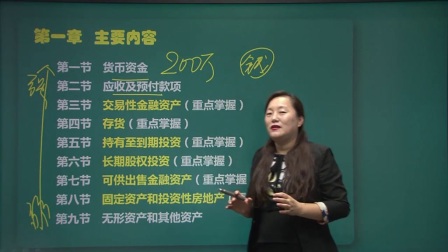 第一章 主要内容
第一节 货币资金 200万
第二节 应收及预付款项
第三节 交易性金融资产（重点掌握）
第四节 存货（重点掌握）
第五节 持有至到期投资（重点掌握）
第六节 长期股权投资（重点掌握）
第七节 可供出售金融资产（重点掌握
第八节 固定资产和投资性房地产
第九节 无形资产和其他资产